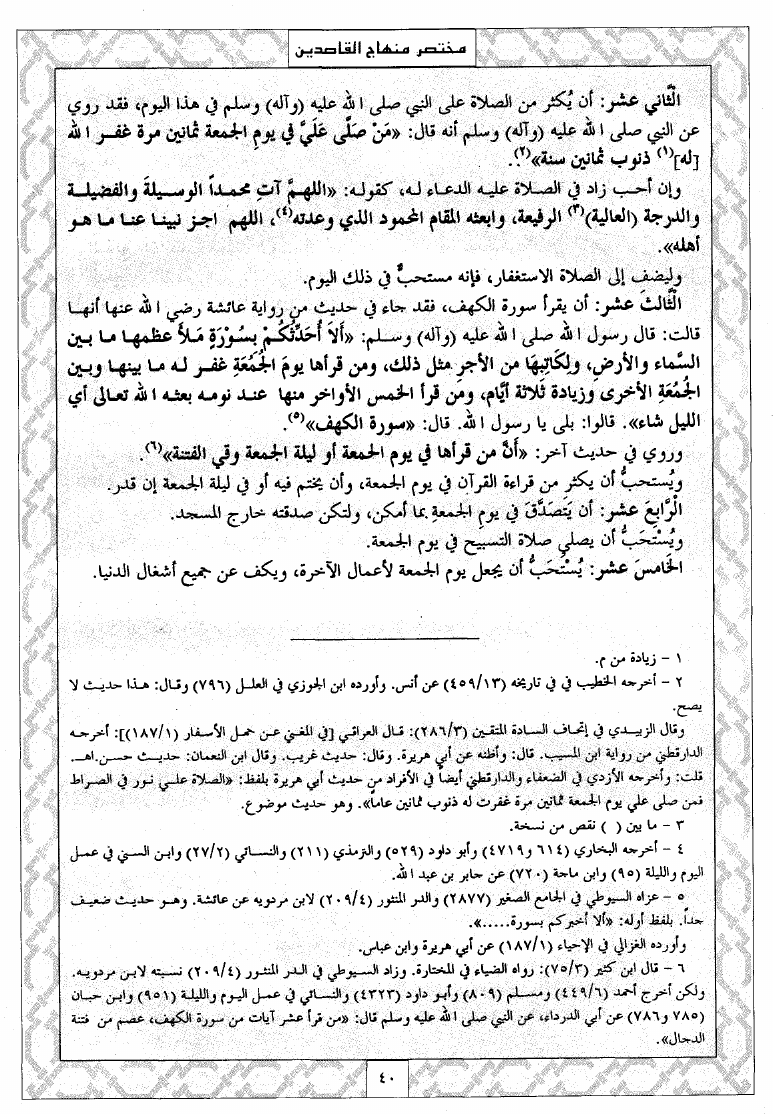 مختصر منهاج القاصدين
الثَّاني عشر: أن يُكثر من الصلاة على النبي صلى الله عليه (وآله) وسلم في هذا اليوم، فقد روي
عن النبي صلى الله عليه (وآله) وسلم أنه قال: «مَنْ صَلَّى عَلَيَّ في يومِ الجمعة ثمانين مرة غفر الله
[له](١) ذنوب ثمانين سنة»(٢).
وإن أحب زاد في الصلاة عليه الدعاء له، كقوله: «اللهمَّ آتِ محمداً الوسيلةَ والفضيلة
والدرجة (العالية)(٣) الرفيعة، وابعثه المقام المحمود الذي وعدته(٤)، اللهم اجز نبينا عنا ما هو
أهله».
وليضف إلى الصلاة الاستغفار، فإنه مستحبٌّ في ذلك اليوم.
الثَّالث عشر: أن يقرأ سورة الكهف، فقد جاء في حديث من رواية عائشة رضي الله عنها أنها
قالت: قال رسول الله صلى الله عليه (وآله) وسلم: «أَلاَ أُحَدِّثُكُمْ بِسُوْرَةٍ مَلأَ عظمها ما بين
السَّماء والأرضِ، ولِكَاتِبِهَا من الأجرِ مثل ذلك، ومن قرأها يومَ الجُمُعَةِ غفر له ما بينها وبين
الجُمُعَةِ الأخرى وزيادة ثلاثة أيَّام، ومن قرأ الخمس الأواخر منها عند نومه بعثه الله تعالى أي
الليل شاء». قالوا: بلى يا رسول الله. قال: «سورة الكهف»(٥).
وروي في حديث آخر: «أنَّ من قرأها في يوم الجمعة أو ليلة الجمعة وقي الفتنة»(٦).
ويُستحبُّ أن يكثر من قراءة القرآن في يوم الجمعة، وأن يختم فيه أو في ليلة الجمعة إن قدر.
الْرَّابع عشر: أن يَتصَدَّقَ في يومِ الجمعةِ بما أمكن، ولتكن صدقته خارج المسجد.
ويُسْتَحَبُّ أن يصلي صلاة التسبيح في يوم الجمعة.
الخامسَ عشر: يُستْحبُّ أن يجعل يوم الجمعة لأعمال الآخرة، ويكف عن جميع أشغال الدنيا.
١ - زيادة من م.
٢ - أخرجه الخطيب في في تاريخه (٤٥٩/١٣) عن أنس. وأورده ابن الجوزي في العلل (٧٩٦) وقال: هذا حديث لا
يصح.
وقال الزبيدي في إتحاف السادة المتقين (٢٨٦/٣): قال العراقي [في المغني عن حمل الأسفار (١٨٧/١)]: أخرجه
الدارقطني من رواية ابن المسيب. قال: وأظنه عن أبي هريرة. وقال: حديث غريب. وقال ابن النعمان: حديث حسن.اهـ.
قلت: وأخرجه الأزدي في الضعفاء والدارقطني أيضاً في الأفراد من حديث أبي هريرة بلفظ: «الصلاة علي نور في الصراط
فمن صلى علي يوم الجمعة ثمانين مرة غفرت له ذنوب ثمانين عاماً». وهو حديث موضوع.
٣ - ما بين ( ) نقص من نسخة.
٤ - أخرجه البخاري (٦١٤ و٤٧١٩) وأبو داود (٥٢٩) والترمذي (٢١١) والنسائي (٢٧/٢) وابن السني في عمل
اليوم والليلة (٩٥) وابن ماجة (٧٢٠) عن جابر بن عبد الله.
٥ - عزاه السيوطي في الجامع الصغير (٢٨٧٧) والدر المنثور (٢٠٩/٤) لابن مردويه عن عائشة. وهو حديث ضعيف
جداً. بلفظ أوله: «ألا أخبركم بسورة.....».
وأورده الغزالي في الإحياء (١٨٧/١) عن أبي هريرة وابن عباس.
٦ - قال ابن كثير (٧٥/٣): رواه الضياء في المختارة. وزاد السيوطي في الدر المنثور (٢٠٩/٤) نسبته لابن مردويه.
ولكن أخرج أحمد (٤٤٩/٦) ومسلم (٨٠٩) وأبو داود (٤٣٢٣) والنسائي في عمل اليوم والليلة (٩٥١) وابن حبان
(٧٨٥ و٧٨٦) عن أبي الدرداء، عن النبي صلى الله عليه وسلم قال: «من قرأ عشر آيات من سورة الكهف، عصم من فتنة
الدجال».
٤٠